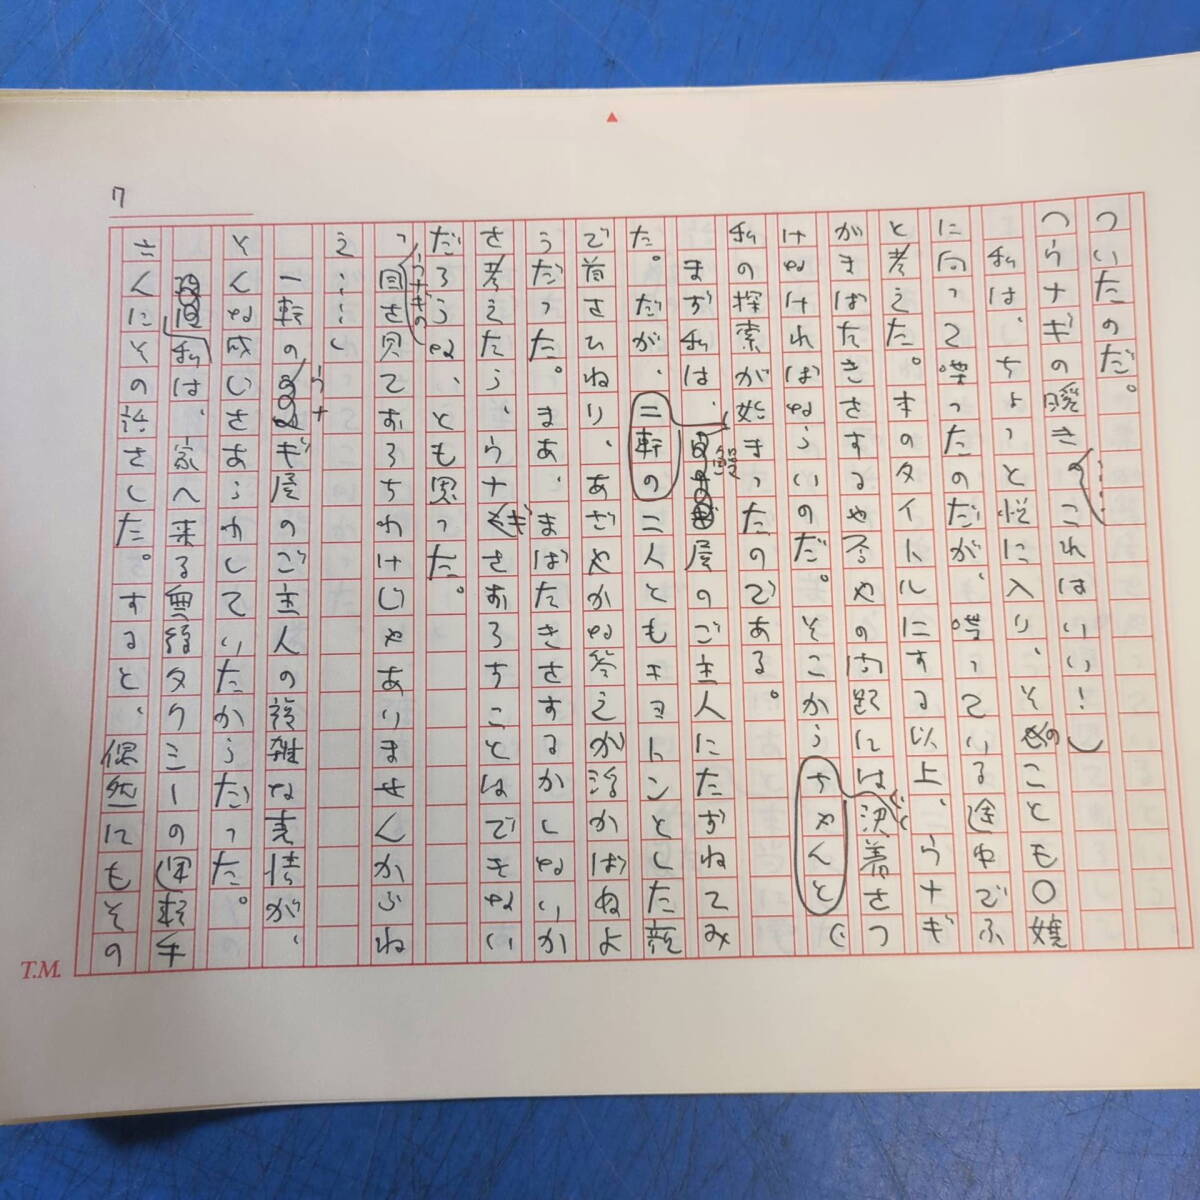 7
ついたのだ。
つウナギの瞬き……これはいい!」
私は、ちょっと悦に入り、そのことも〇嬢
に向って喋ったのだが、喋っている途中でふ
と考えた。本のタイトルにする以上、ウナギ
がまばたきをするや否やの問題には決着をつ
けなければならないのだ。そこからちゃんと
私の探索が始まったのである。
まず私は、鰻屋のご主人にたずねてみ
た。だが、二軒の二人ともキョトンとした顔
で首をひねり、あざやかな答えが浮かばぬよ
うだった。まあ、まばたきをするかしないか
を考えたら、ウナギをおろすことはできない
だろうな、とも思った。
「うなぎの目を見ておろすわけじゃありませんからね
え……」
一軒のうナギ屋のご主人の複雑な表情が、
そんな感じをあらわしていたからだった。
私は、家へ来る無線タクシーの運転手
さんにその話をした。すると、偶然にもその
T.M.